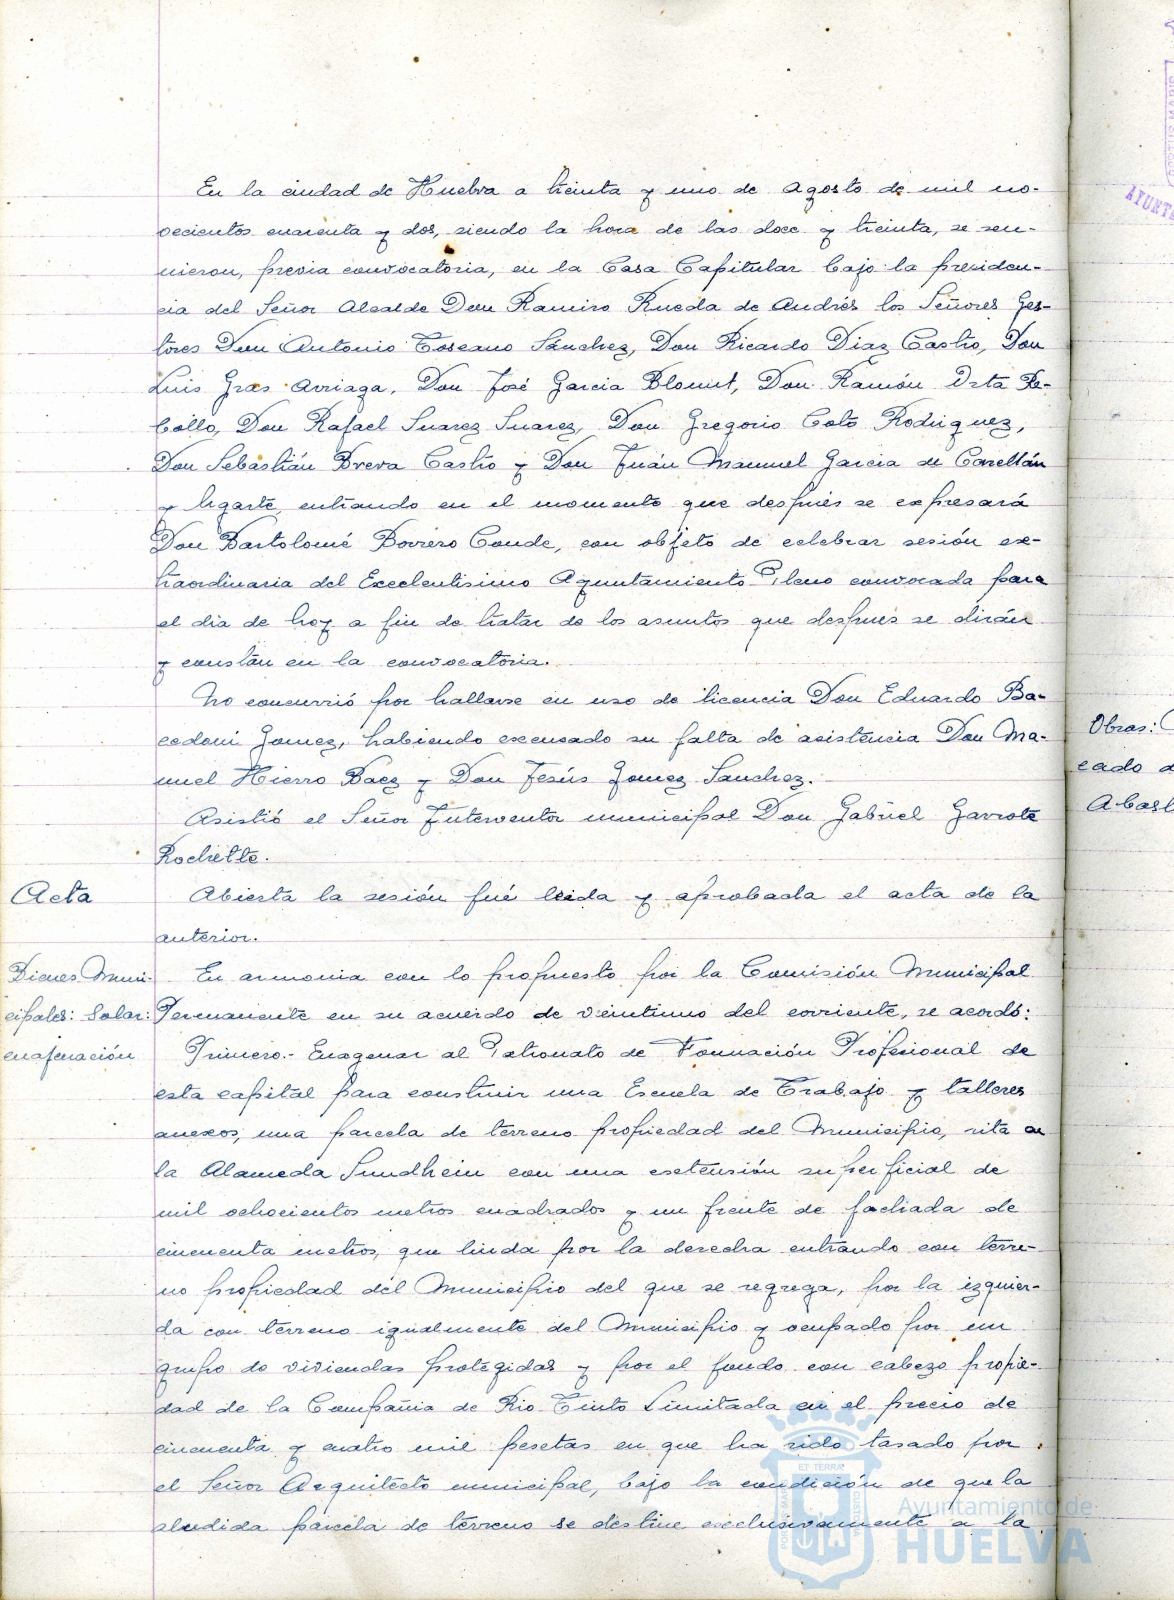 En la ciudad de Huelva a treinta y uno de Agosto de mil no-
vecientos cuarenta y dos, siendo la hora de las doce y treinta, se reu-
nieron, previa convocatoria, en la Casa Capitular bajo la presiden-
cia del Señor Alcalde Don Ramiro Rueda de Andrés los Señores Ges-
tores Don Antonio Toscano Sánchez, Don Ricardo Diaz Castro, Don
Luis Gras Arriaga, Don José Garcia Blomut, Don Ramón Orta Re-
bollo, Don Rafael Suarez Suarez, Don Gregorio Coto Rodriguez,
Don Sebastián Breva Castro y Don Juán Manuel Garcia de
y Ugarte, entrando en el momento que después se expresará
Don Bartolomé Borrero Conde, con objeto de celebrar sesión ex-
traordinaria del Excelentisimo Ayuntamiento Pleno convocada para
el dia de hoy a fin de tratar de los asuntos que después se dirán
y constan en la convocatoria.
No concurrió por hallarse en uso de licencia Don Eduardo Ba-
cedoni Gomez, habiendo excusado su falta de asistencia Don Ma-
nuel Hierro Baez y Don Jesús Gomez Sanchez.
Asistió el Señor Interventor municipal Don Gabriel Garrote
Rochette.
Acta
Abierta la sesión fué leida y aprobada el acta de la
anterior.
Bienes Muni-
cipales: Solar:
enajenación
En armonia con lo propuesto por la Comisión Municipal
Permanente en su acuerdo de veintiuno del corriente, se acordó:
Primero.- Enagenar al Patronato de Formación Profesional de
esta capital para construir una Escuela de Trabajo y talleres
anexos, una parcela de terreno propiedad del Municipio, sita en
la Alameda Sundhein con una estensión superficial de
mil ochocientos metros cuadrados y un frente de fachada de
cincuenta metros, que linda por la derecha entrando con terre-
no propiedad del Municipio del que se segrega, por la izquier-
da con terreno igualmente del Municipio y ocupado por un
grupo de viviendas protegidas y por el fondo con cabezo propie-
dad de la Compañia de Rio Tinto Limitada en el precio de
cincuenta y cuatro mil pesetas en que ha sido tasado por
el Señor Arquitecto municipal, bajo la condición de que la
aludida parcela de terreno se destine exclusivamente a la
Obras:
cado d
Abast
AYUNTA
ET TERRA
Ayuntamiento de
HUELVA